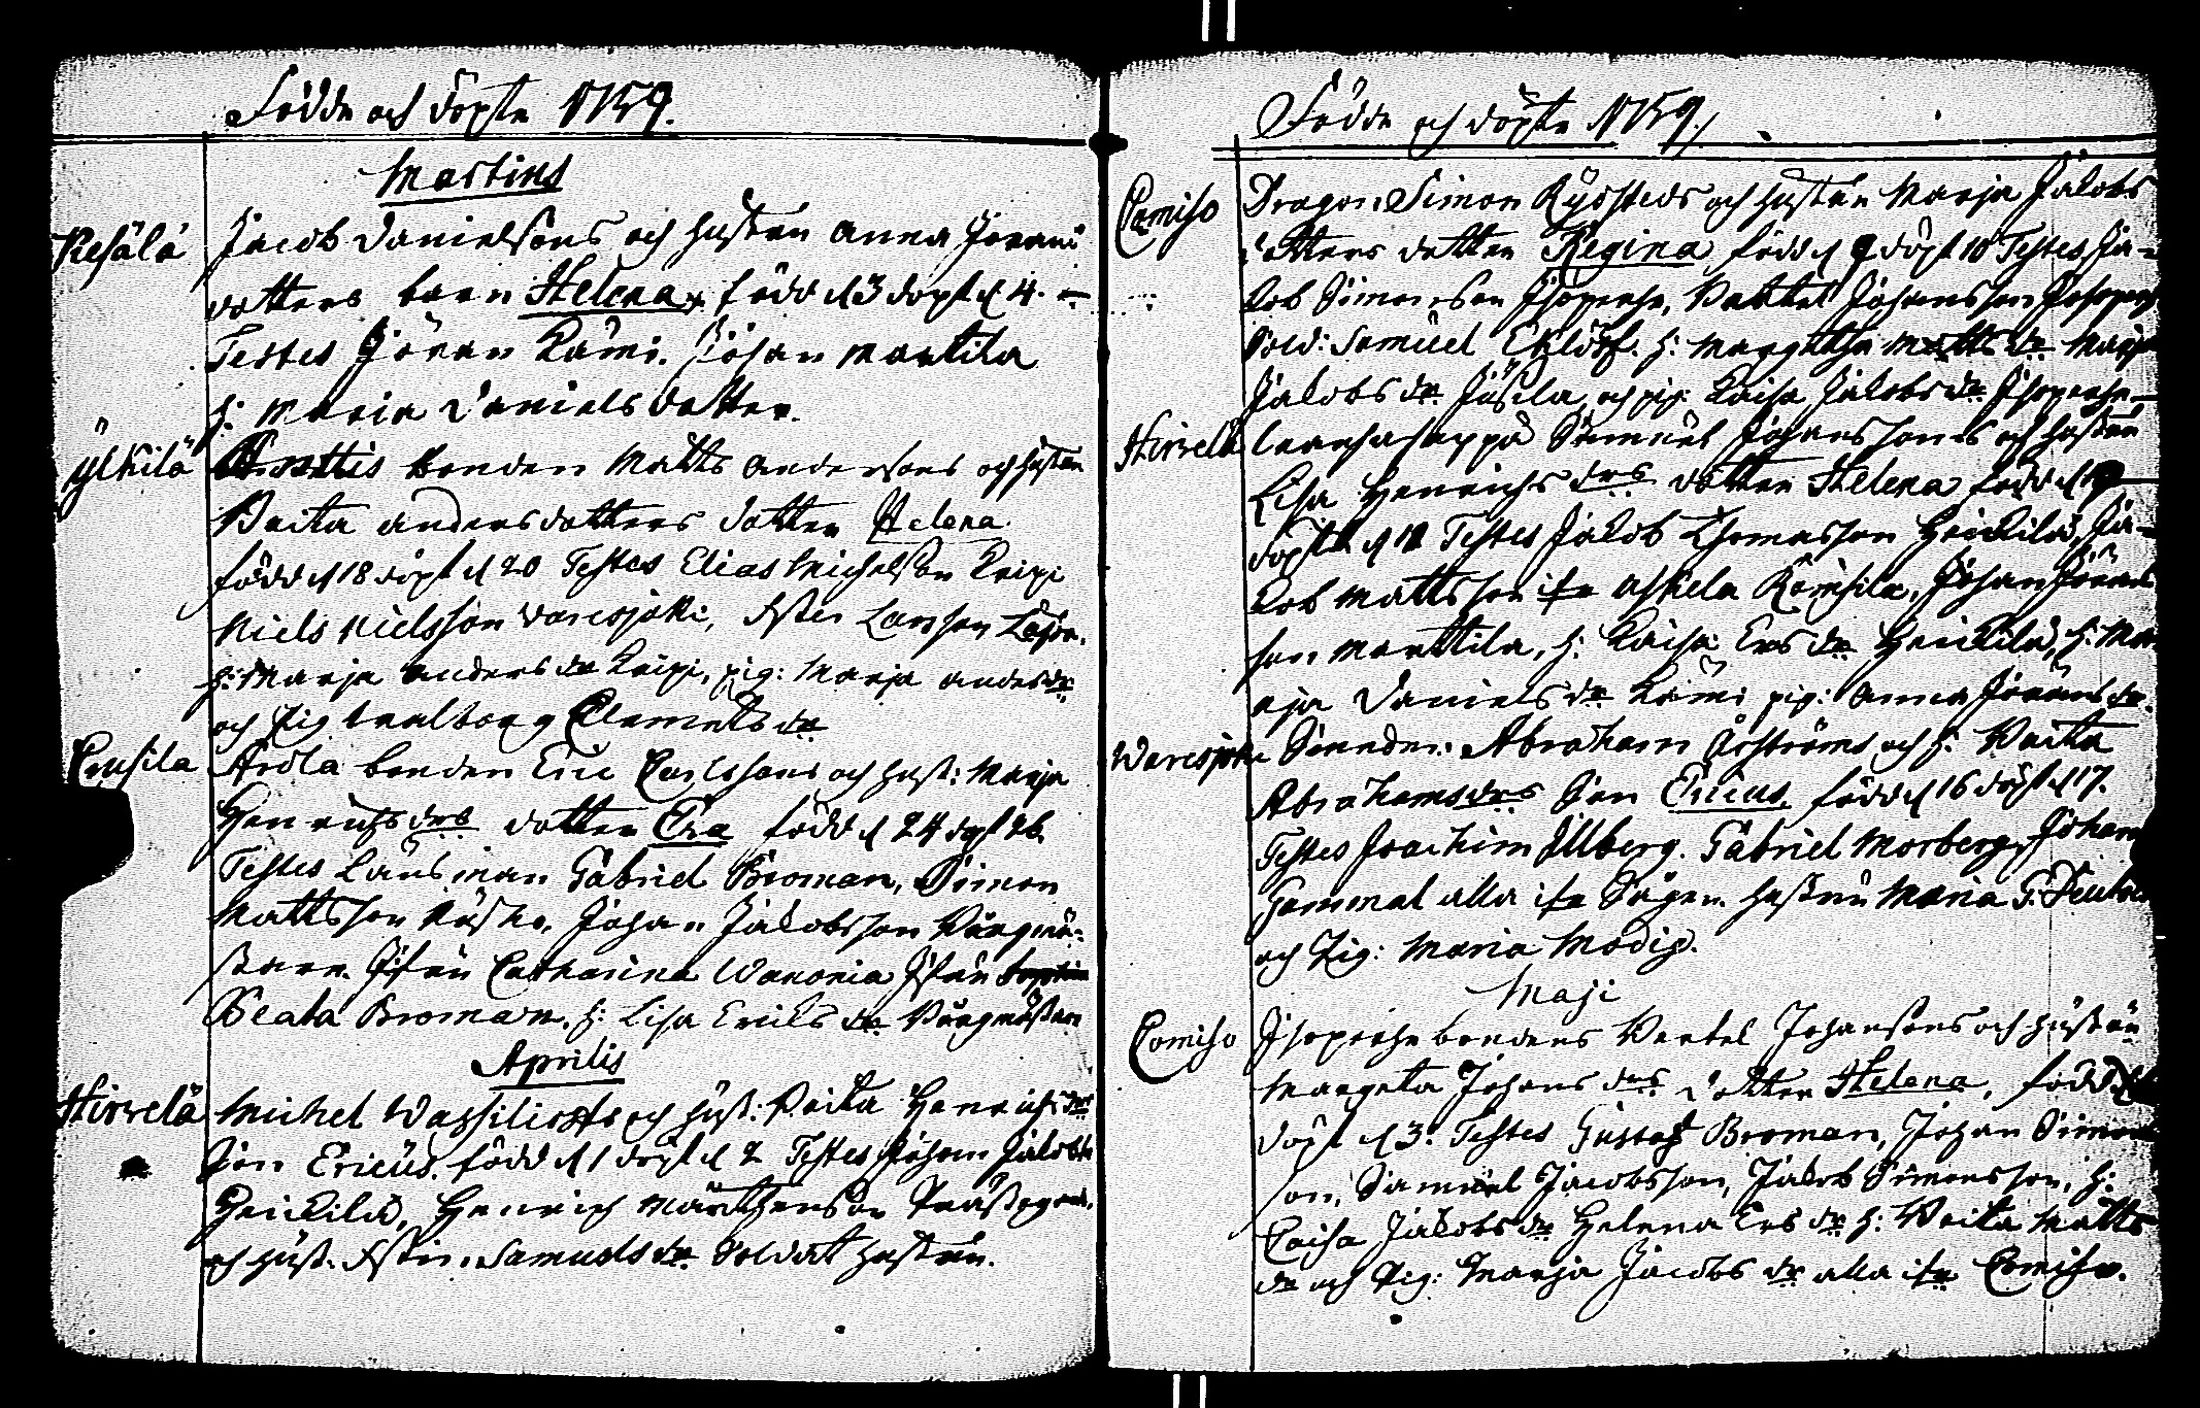 Födde och döpte 1759.
Martius
Kesälä Jacob Danielsons och hustrun Anna Jörans
dotters barn Helena, född d 3 döpt d 4.
Testes Jöran Rämi. Johan Marttila
h: Maria Danielsdotter.
Ylkilä Anttis bonden Matts Andersons och hustrun
Brita Andersdotters dotter Helena
född d 18 döpt d 20 Testes Elias Michelson Leipi
Niels Nielsson Varesjoki,
h: Marja Anders dr Leipi, pig: Marja Anders dr
och Pig Walborg Clemets dr
Ensila Arola bonden Eric Carlssons och hust: Marja
Henrichs drs dotter Eva född d 24 döpt 26
Testes Länsman Gabriel Broman, Simon
Mattsson Johan Jakobsson
Catharina
Beata Broman. h: Lisa Eriks dr
Aprilis
Hirvelä Michel och hust: Brita Henrichs drs
Son Ericus född d 1 döpt d 2 Testes Johan Jakobss
Heickilä, Henrich
och hust. Stin. Samuels dr Soldat hustru.
Födde och döpte 1759.
Comiso Dragon Simon och hustrun Marja Jakobs
dotters dotter Regina född d 9 döpt 10 Testes Ja-
kob Simonson Isoperhe, Bertel Johansson Isoperhe
Sold: Samuel Eklöf. h: Margetha Matts dr Marja
Jakobs dr Jusila och pig: Kaisa Jakobs dr Isoperhe
Hirvelä Samuel Johanssons och hustrun
Lisa Henrichs drs dotter Helena född d
döpt d 12 Testes Jakob Thomasson Heickilä, Ja-
kob Mattsson Askela Johan Jöran
son Marttila, h: Kaisa Ers dr Heickilä, h: Ma
rja Daniels dr Rämi pig: Anna Jörans dr.
Varesjoki Smeden Abraham Åströms och h: Brita
Abrahams drs Son Ericus född d 16 döpt d 17.
Testes Joachim Illberg. Gabriel Morberg, Johan
Gammal alla ifr Sågen. hustru Maria
och Pig: Maria Modig.
Maji
Comiso Isoperhe bondens Bertel Johansons och hustrun
Margeta Johans drs dotter Helena, född d
döpt d 3. Testes Gustaf Broman, Johan Simon
son, Samuel Jacobsson, Jakob Simonsson, h:
Caisa Jakobs dr Helena Ers dr h: Brita Matts
dr och Pig: Marja Jacobs dr alla ifr Comiso.